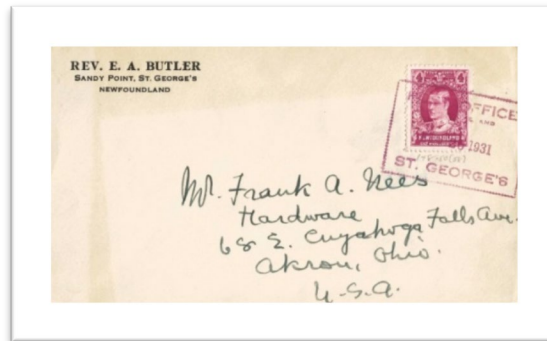 REV. E. A. BUTLER
SANDY POINT, ST. GEORGE'S
NEWFOUNDLAND
OFFICE
AND
1931
ST. GEORGE'S
Mr. Frank A. Nees
Hardware
68 E. Cuyahoga Falls Ave.
Akron, Ohio.
U.S.A.